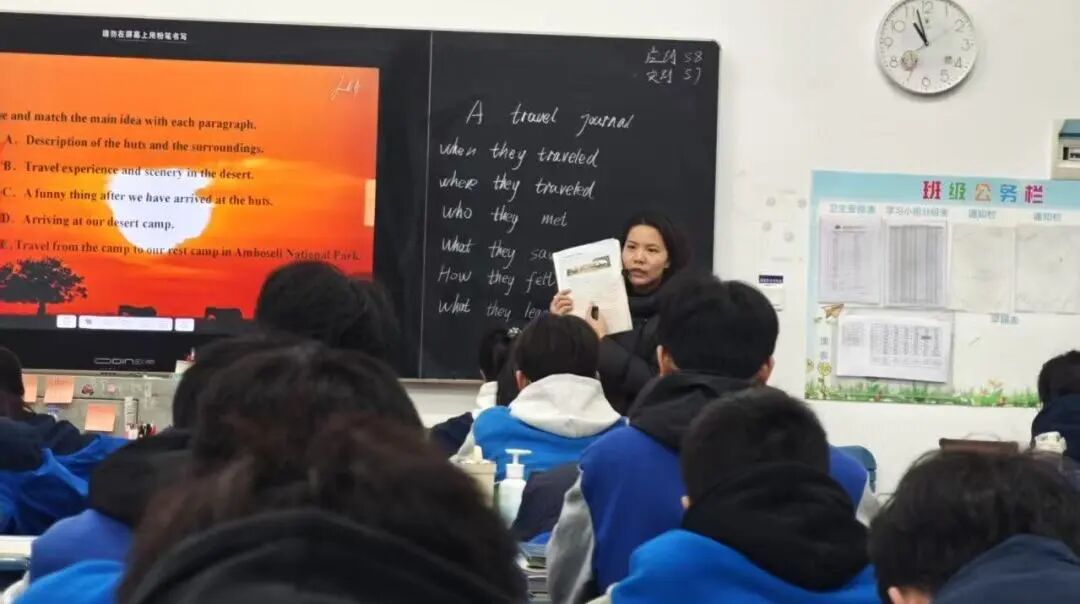 请勿在屏幕上用粉笔书写
e and match the main idea with each paragraph.
A. Description of the huts and the surroundings.
B. Travel experience and scenery in the desert.
C. A funny thing after we have arrived at the huts.
D. Arriving at our desert camp.
E. Travel from the camp to our rest camp in Amboseli National Park.
58
57
A travel journal
when they traveled
where they traveled
who they met
What they sa
How they felt
What they lea
班级公务栏
卫生安排表
学习小组分组表
通知栏
通知栏